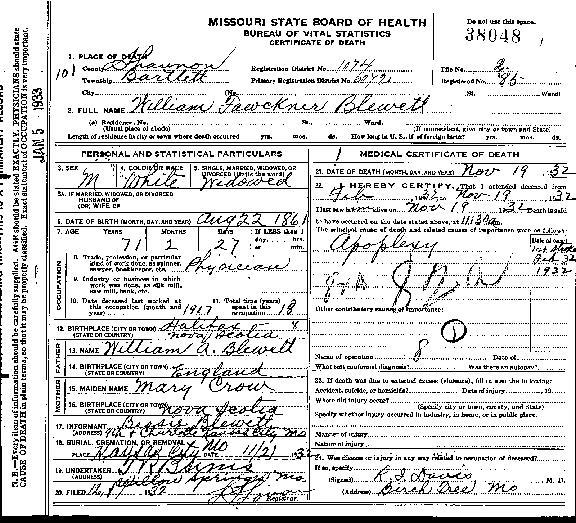 MISSOURI STATE BOARD OF HEALTH
BUREAU OF VITAL STATISTICS
CERTIFICATE OF DEATH
Do not use this space.
38048
1. PLACE OF DEATH
County Shannon
Registration District No. 1074
File No. 2
Township Bartlett
Primary Registration District No.
Registered No.
City (No. St. Ward)
2. FULL NAME William Fawckner Blewett
(a) Residence, No. St. Ward.
(Usual place of abode) (If nonresident, give city or town and State)
Length of residence in city or town where death occurred yrs. mos. ds. How long in U. S., if of foreign birth? yrs. mos. ds.
PERSONAL AND STATISTICAL PARTICULARS
3. SEX M
4. COLOR OR RACE White
5. SINGLE, MARRIED, WIDOWED, OR DIVORCED (write the word) Widowed
5A. IF MARRIED, WIDOWED, OR DIVORCED
HUSBAND OF
(OR) WIFE OF
6. DATE OF BIRTH (MONTH, DAY, AND YEAR) Aug 22 1861
7. AGE YEARS 71 MONTHS 2 DAYS 27 If LESS than 1 day, hrs. or min.
OCCUPATION
8. Trade, profession, or particular kind of work done, as spinner, sawyer, bookkeeper, etc. Physician
9. Industry or business in which work was done, as silk mill, saw mill, bank, etc.
10. Date deceased last worked at this occupation (month and year) 1917
11. Total time (years) spent in this occupation 18
12. BIRTHPLACE (CITY OR TOWN) Halifax
(STATE OR COUNTRY) Nova Scotia
FATHER
13. NAME William A. Blewett
14. BIRTHPLACE (CITY OR TOWN)
(STATE OR COUNTRY) England
MOTHER
15. MAIDEN NAME Mary Crow
16. BIRTHPLACE (CITY OR TOWN)
(STATE OR COUNTRY) Nova Scotia
17. INFORMANT Bessie Blewett
(ADDRESS) 9th & Charlotte Kansas City Mo
18. BURIAL, CREMATION, OR REMOVAL
PLACE Kansas City Mo DATE 11/21 32
19. UNDERTAKER
(ADDRESS) Willow Springs Mo.
20. FILED 32
Registrar.
MEDICAL CERTIFICATE OF DEATH
21. DATE OF DEATH (MONTH, DAY, AND YEAR) Nov 19 32
22. I HEREBY CERTIFY, That I attended deceased from
Feb Nov 19 32
I last saw h alive on Nov 19 32 Death is said
to have occurred on the date stated above, at 11:30 a m.
The principal cause of death and related causes of importance were as follows:
Date of onset
Apoplexy
1932
Other contributory causes of importance:
1
Name of operation Date of
What test confirmed diagnosis? Was there an autopsy?
23. If death was due to external causes (violence), fill in also the following:
Accident, suicide, or homicide? Date of injury 19
Where did injury occur?
(Specify city or town, county, and State)
Specify whether injury occurred in industry, in home, or in public place.
Manner of injury
Nature of injury
24. Was disease or injury in any way related to occupation of deceased?
If so, specify
(Signed) Davis M. D.
(Address) Birch Tree Mo
JAN 5 1933